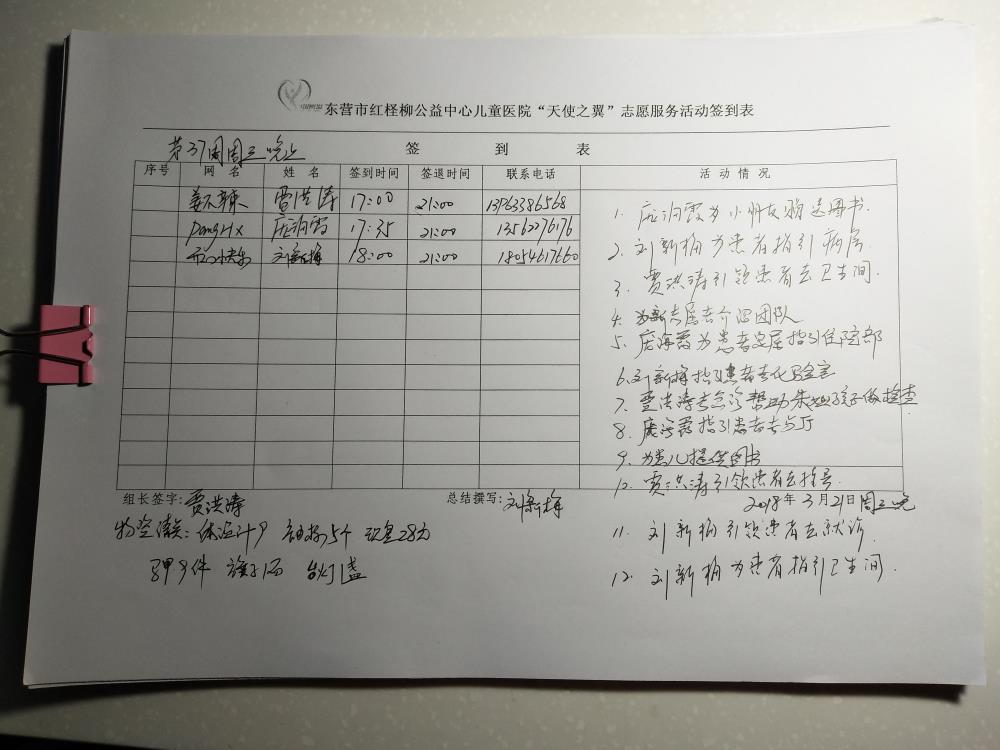 东营市红柽柳公益中心儿童医院“天使之翼”志愿服务活动签到表
第37周周三晚上
签 到 表
序号 网 名 姓 名 签到时间 签退时间 联系电话 活 动 情 况
姜不辣 贾洪涛 17:00 21:00 13963386568
PangHx 庞海霞 17:35 21:00 13562276176
快乐 刘新梅 18:00 21:00 18054617660
1. 庞海霞为小朋友赠送图书.
2. 刘新梅为患者指引病房.
3. 贾洪涛引领患者去卫生间.
4. 为新患属介绍团队
5. 庞海霞为患者家属指引住院部
6. 刘新梅指引患者去化验室
7. 贾洪涛去急诊帮助 孩子做检查
8. 庞海霞指引患者去B厅
9. 为患儿提供图书
10. 贾洪涛引领患者去挂号
组长签字:贾洪涛 总结撰写:刘新梅 2018年3月21日周三晚
11. 刘新梅引领患者去就诊.
物资清点: 体温计9 5个 现金28元
12. 刘新梅为患者指引卫生间.
马甲9件 旗子1面 台灯1盏